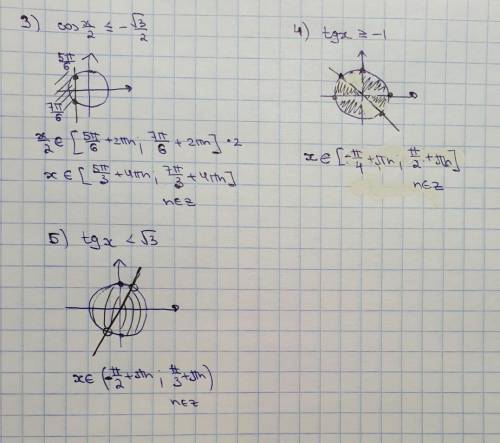 3) cos x/2 ≤ -√3/2
5π/6
7π/6
x/2 ∈ [5π/6 + 2πn ; 7π/6 + 2πn] •2
x ∈ [5π/3 + 4πn ; 7π/3 + 4πn]
n∈Z
4) tgx ≥ -1
x ∈ [-π/4 + πn ; π/2 + πn]
n∈Z
5) tgx < √3
x∈ (-π/2 + πn ; π/3 + πn)
n∈Z